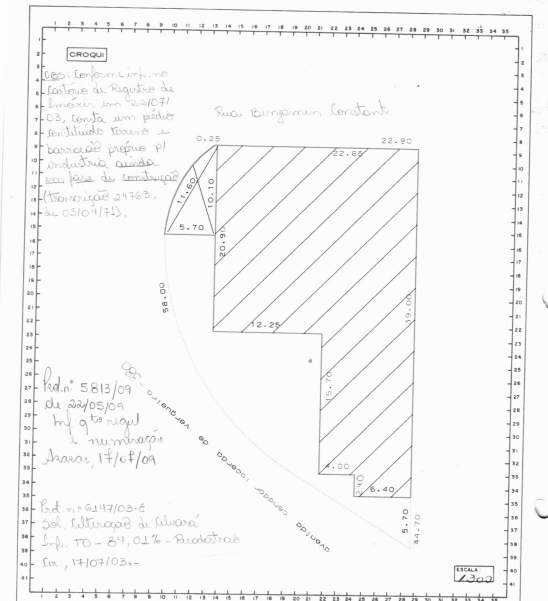 CROQUI
OBS: Conforme inf. no
Cartório de Registro de
Imóveis, em 22/07/
03, consta um prédio
contituído terreno e
barracão próprio p/
industria ainda
em fase de construção
(transcrição 24763,
de 05/04/71).
Rua Bengamin Constant
0.25
22.90
22.65
11.60
10.10
5.70
20.90
58.00
39.00
12.25
15.70
4.00
2.40
6.40
5.70
44.70
avenida senador lacerda de vergueiro
Prot. nº 5813/09
de 22/05/09
Inf qto regul
numeração
Araras, 17/07/09
Prot. nº 6147/03-E
Sol. Alteração de Alvará
Inf. TO - 84,01% - Recadastrado
Arr, 17/07/03.-
ESCALA
1:300